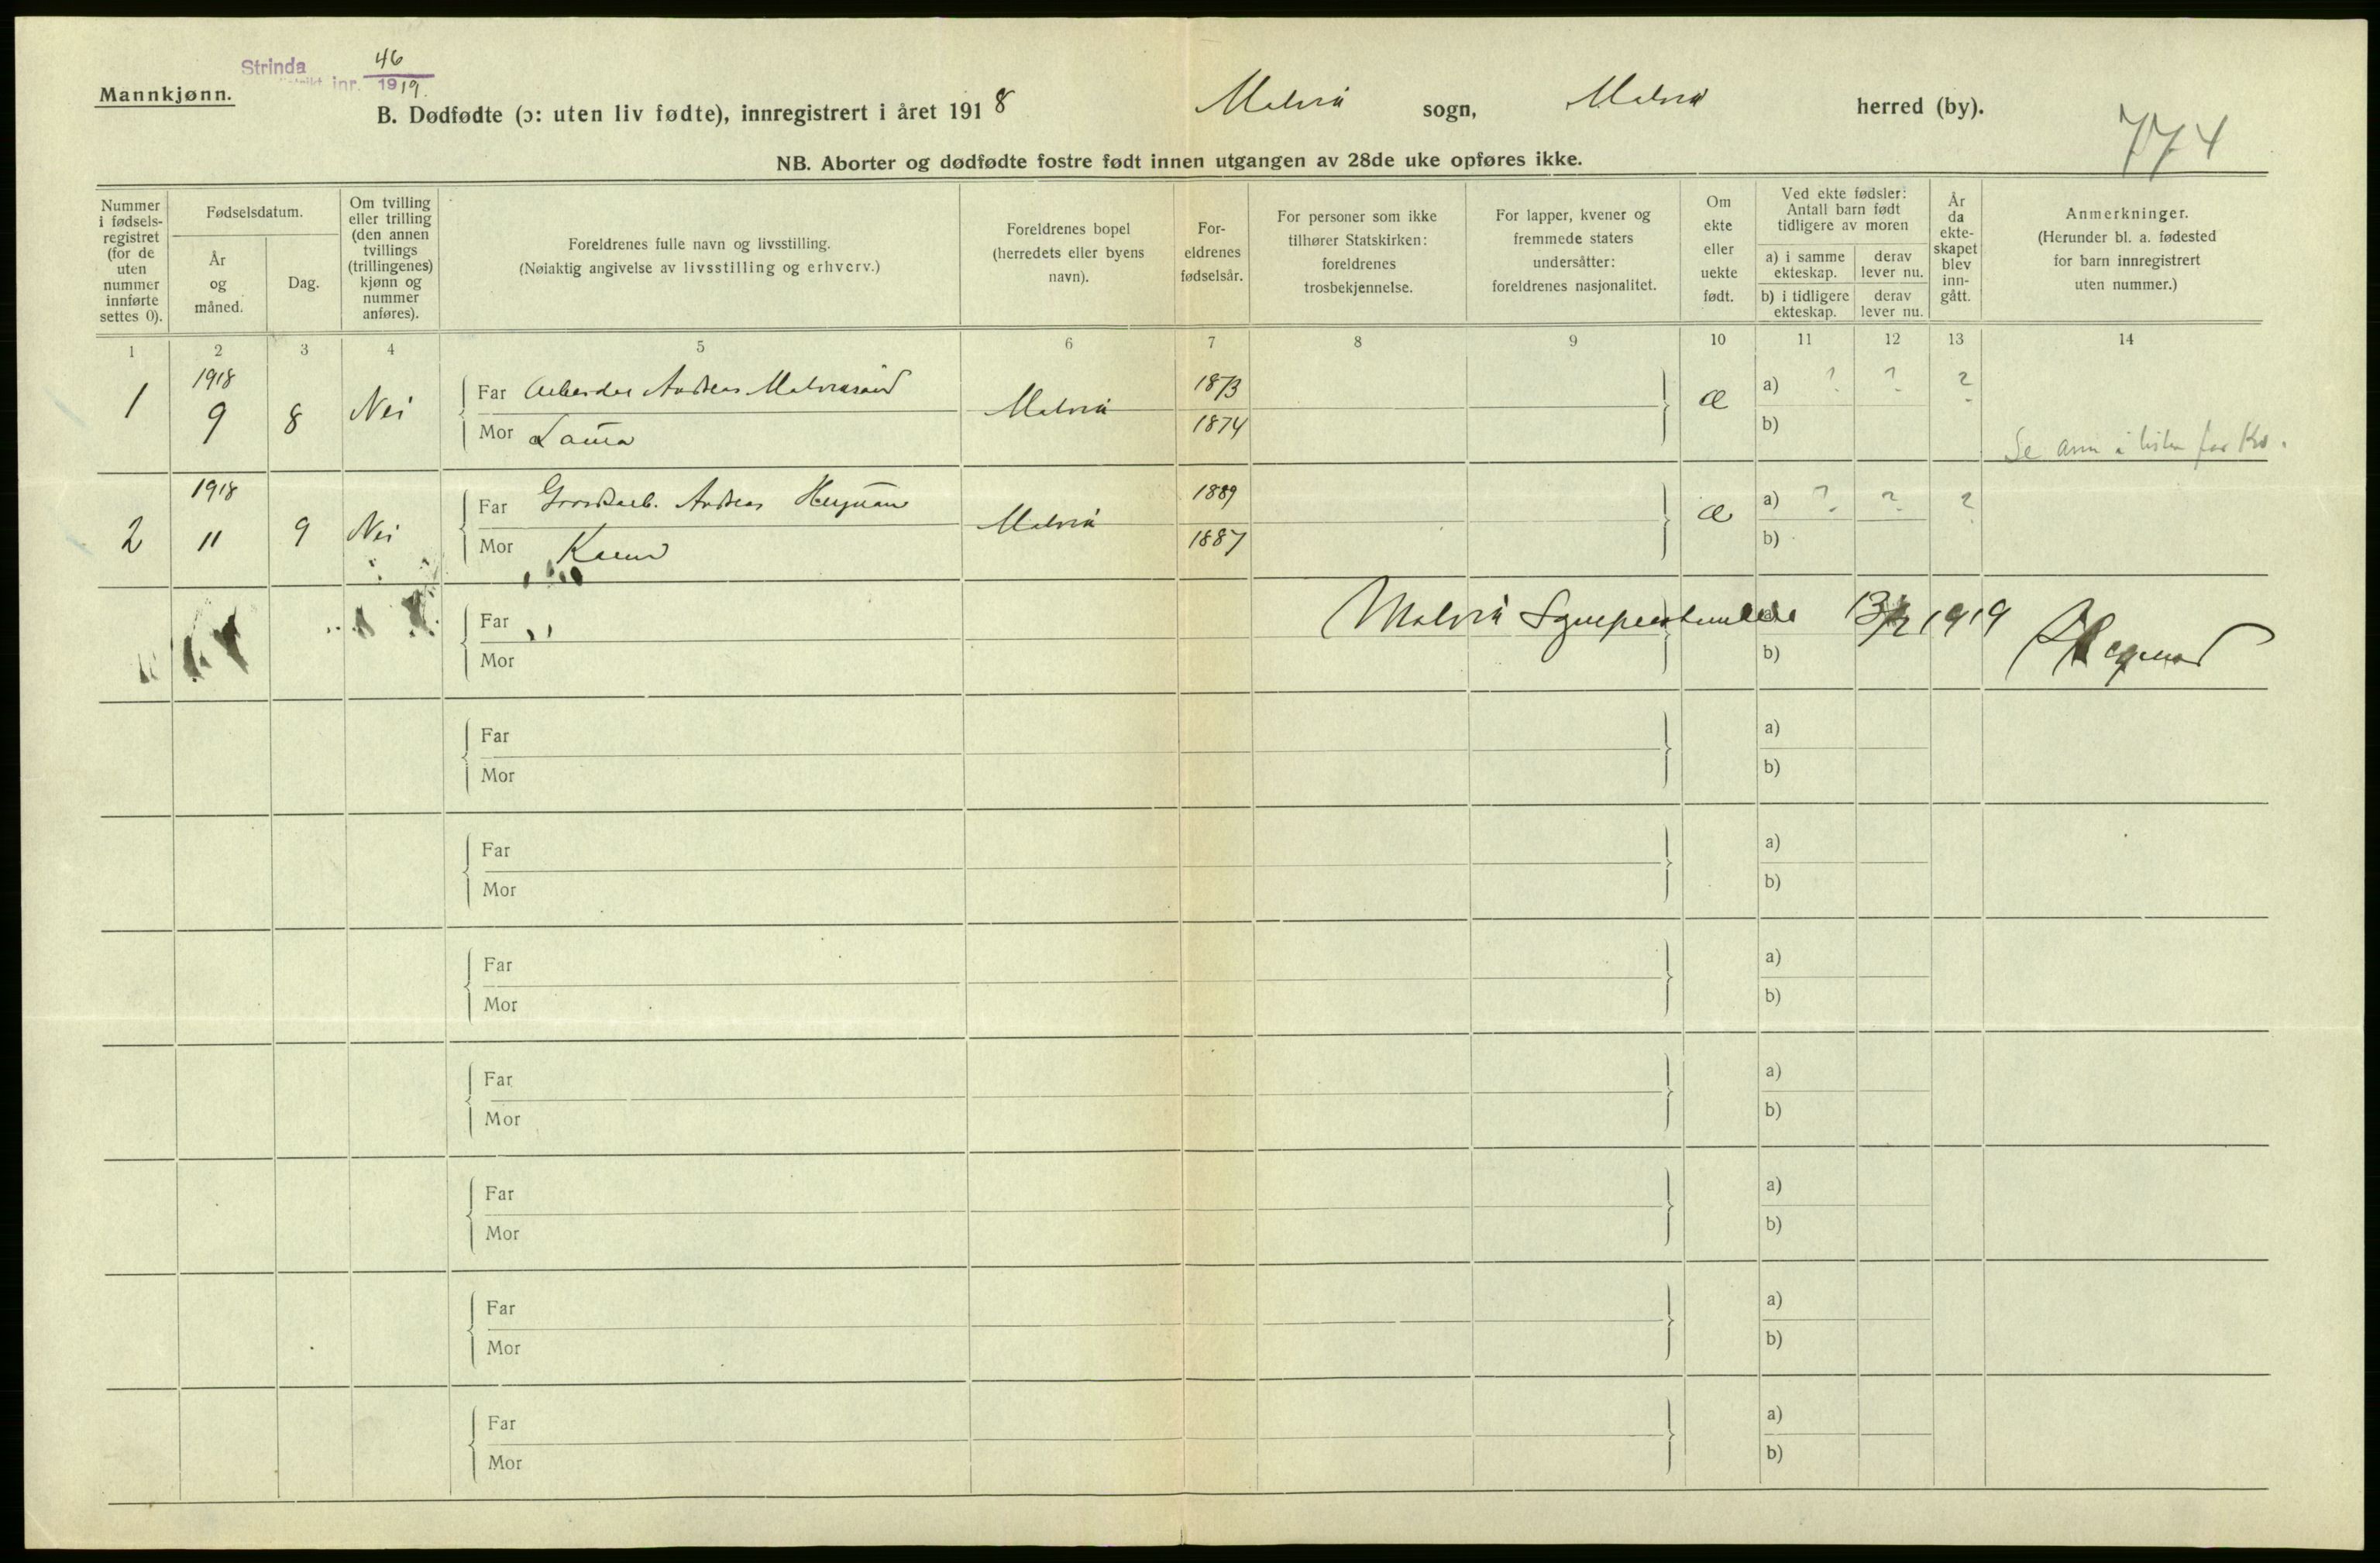 Strinda
inr. 46
1919.
Mannkjønn.
B. Dødfødte (ɔ: uten liv fødte), innregistrert i året 1918 Malvik sogn, Malvik herred (by).
774
NB. Aborter og dødfødte fostre født innen utgangen av 28de uke opføres ikke.
Nummer
i fødsels-
registret
(for de
uten
nummer
innførte
settes 0).
Fødselsdatum.
År
og
måned.
Dag.
Om tvilling
eller trilling
(den annen
tvillings
(trillingenes)
kjønn og
nummer
anføres).
Foreldrenes fulle navn og livsstilling.
(Nøiaktig angivelse av livsstilling og erhverv.)
Foreldrenes bopel
(herredets eller byens
navn).
For-
eldrenes
fødselsår.
For personer som ikke
tilhører Statskirken:
foreldrenes
trosbekjennelse.
For lapper, kvener og
fremmede staters
undersåtter:
foreldrenes nasjonalitet.
Om
ekte
eller
uekte
født.
Ved ekte fødsler:
Antall barn født
tidligere av moren
a) i samme
ekteskap.
derav
lever nu.
b) i tidligere
ekteskap.
derav
lever nu.
År
da
ekte-
skapet
blev
inn-
gått.
Anmerkninger.
(Herunder bl. a. fødested
for barn innregistrert
uten nummer.)
1 2 3 4 5 6 7 8 9 10 11 12 13 14
1 1918 9 8 Nei Far Arbeider Andreas Malviksand Malvik 1873 æ a) ? ? ?
Mor Laura 1874 b)
Se anm i listen for Kv.
2 1918 11 9 Nei Far Andreas Malvik 1889 æ a) ? ? ?
Mor Karen 1887 b)
Far Malvik 13/2 1919
Mor b)
Far a)
Mor b)
Far a)
Mor b)
Far a)
Mor b)
Far a)
Mor b)
Far a)
Mor b)
Far a)
Mor b)
Far a)
Mor b)